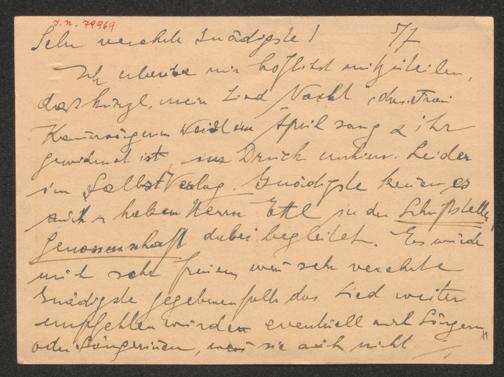 J.N. 79969
Sehr verehrte Gnädigste! 5/7
Ich erlaube mir höflichst mitzuteilen,
dass kürzl. mein Lied Nacht, das Frau
Kammersängerin im April sang & ihr
gewidmet ist, im Druck erschien. Leider
im Selbstverlag. Gnädigste kennen es
auch & haben Herrn Ettl in der Schriftsteller
genossenschaft dabei begleitet. Es würde
mich sehr freuen, wenn sehr verehrte
Gnädigste gegebenenfalls das Lied weiter
empfehlen würden eventuell auch Sängern
oder Sängerinnen, wenn sie auch nicht